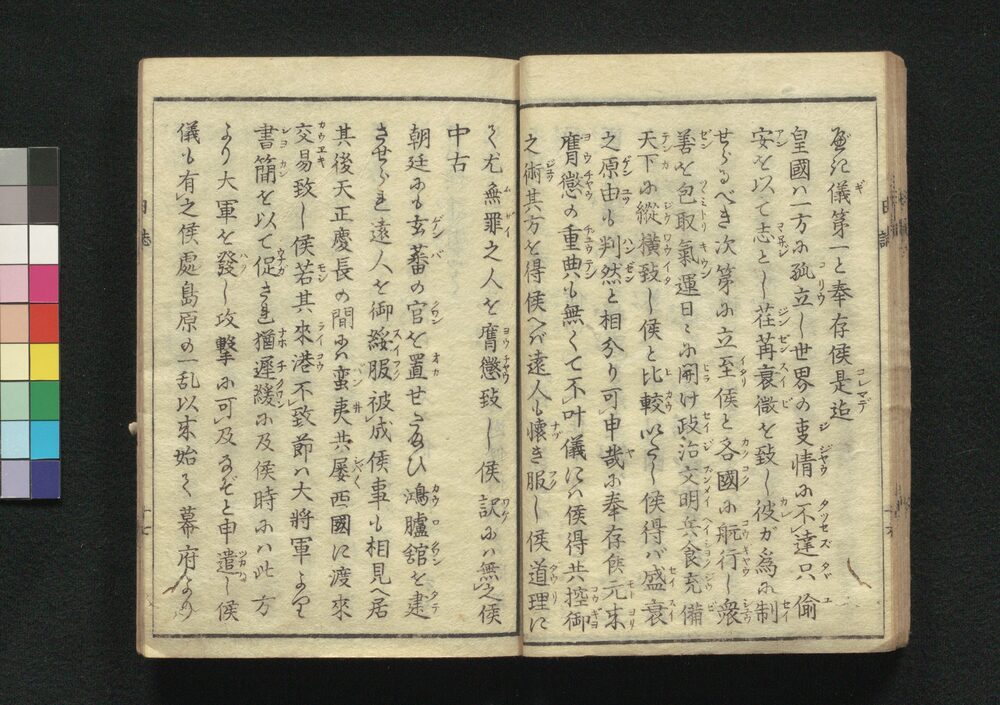 儀第一と奉存候是迄
皇國ハ一方に孤立し世界の事情に不達只偷
安を以て志とし荏苒衰微を致し彼が為に制
せらるべき次第に立至候と各國に航行し衆
善を包取氣運日々に開け政治文明兵食充備
天下に縱横致し候と比較いたし候得バ盛衰
之原由も判然と相分り可申哉に奉存候元来
膺懲の重典も無くて不叶儀にハ候得共控御
之術其方を得候へバ遠人も懐き服し候道理に
て尤無罪之人を膺懲致し候訳にハ無之候
中古
朝廷にも玄蕃の官を置せたまひ鴻臚舘を建
させられ遠人を御綏服被成候事も相見へ居
其後天正慶長の間にハ蛮夷共屡西國に渡来
交易致し候若其来港不致節ハ大將軍より
書簡を以て促され猶遲緩に及候時にハ此方
より大軍を發し攻撃に可及などと申遣し候
儀も有之候處島原の一乱以来始て幕府より
日誌